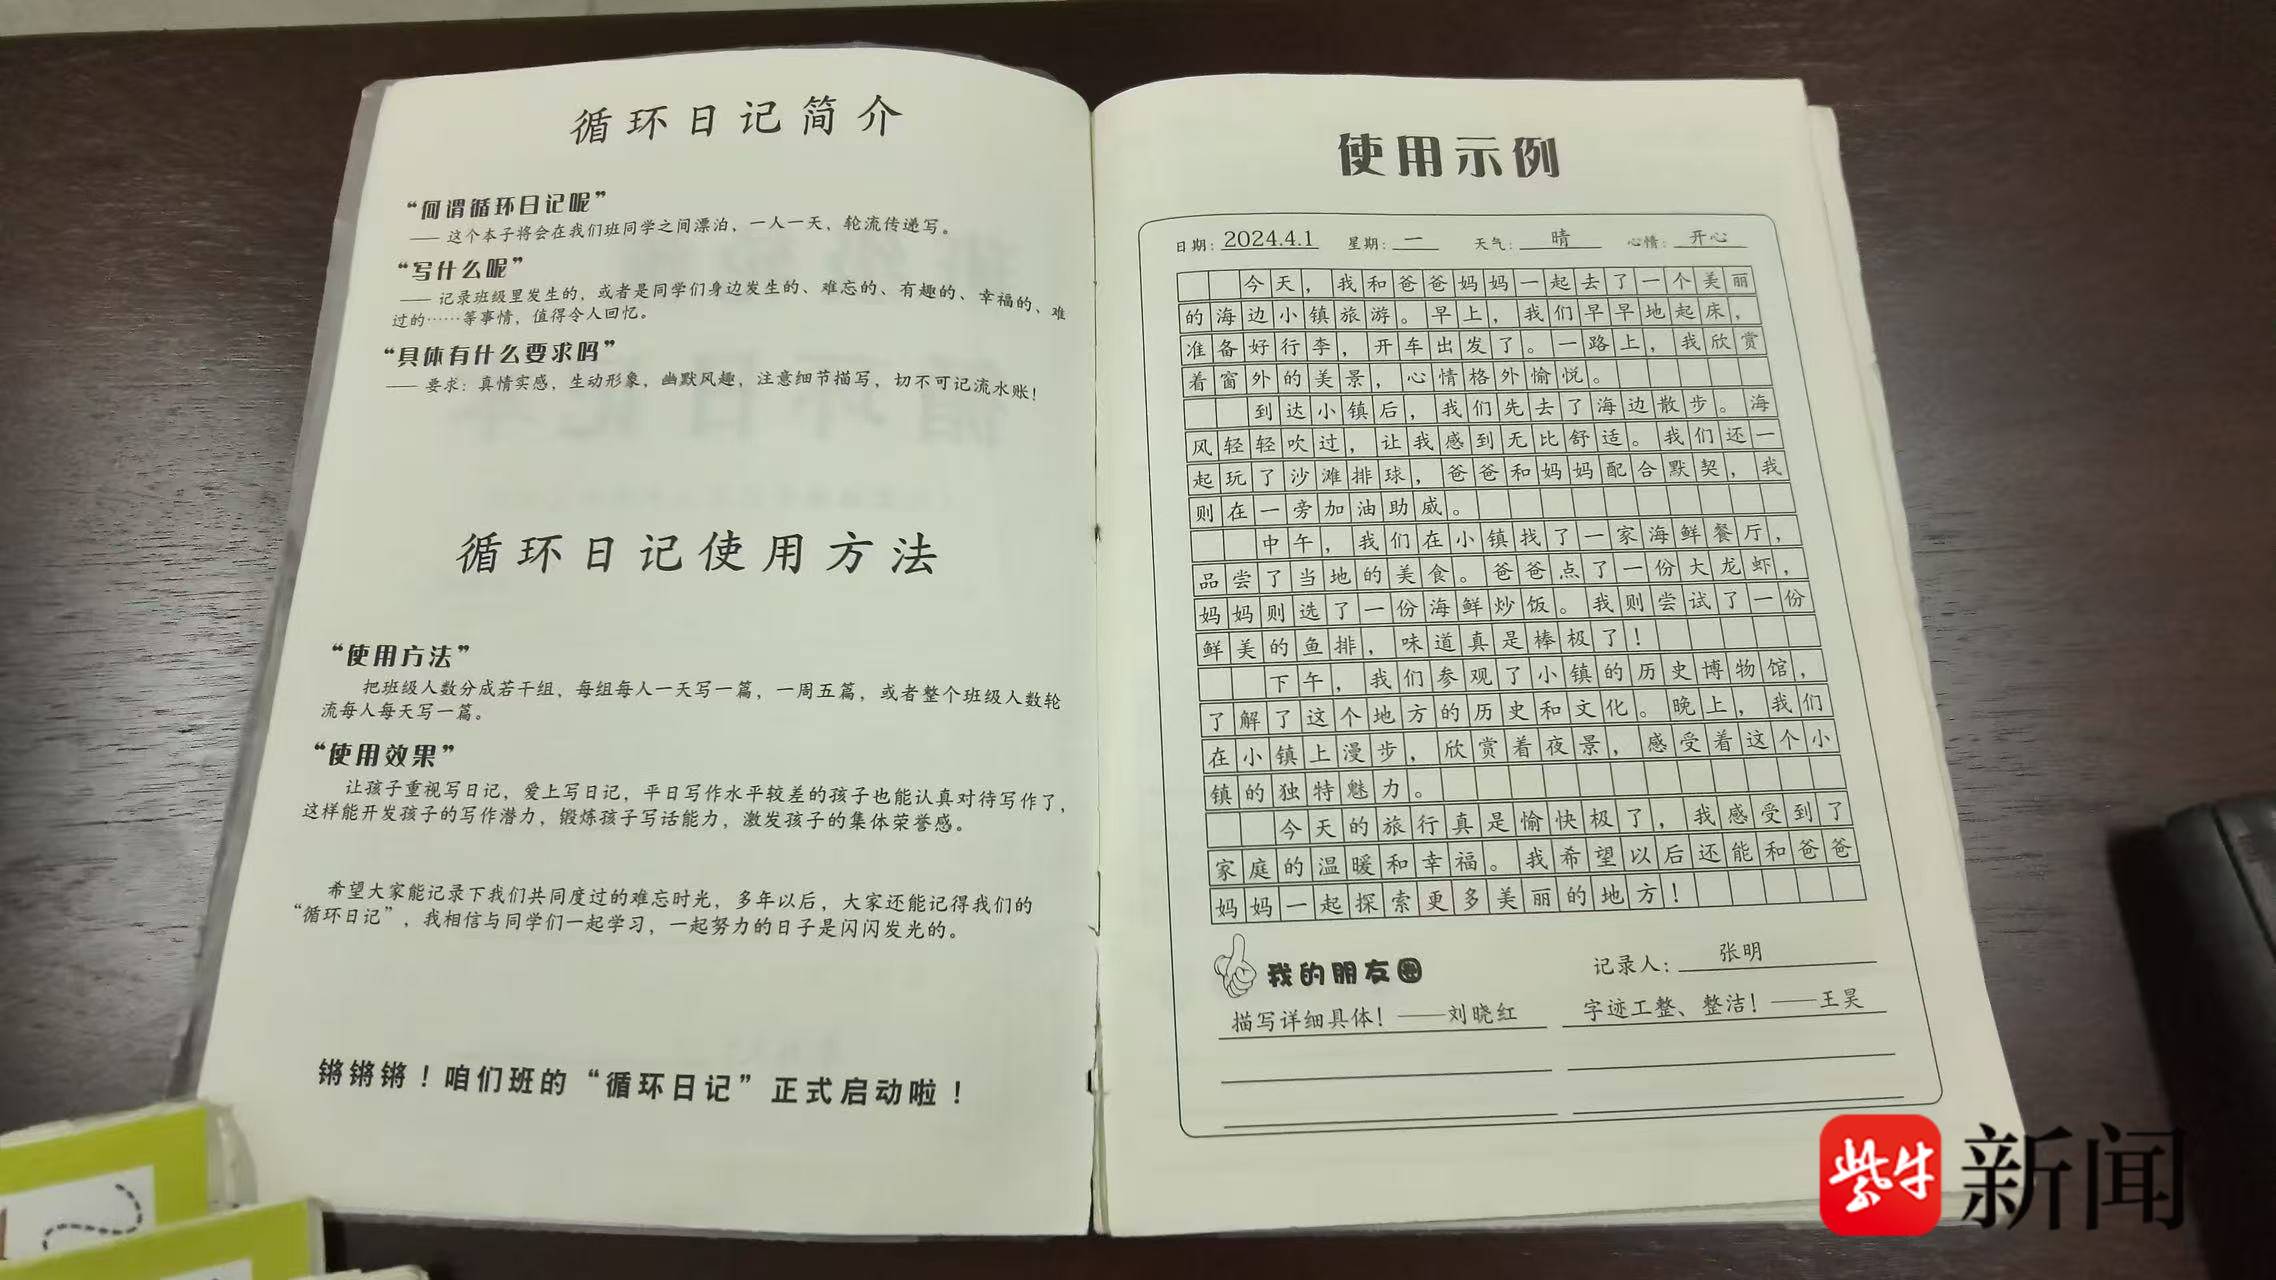 循环日记简介
“何谓循环日记呢”
—— 这个本子将会在我们班同学之间漂泊，一人一天，轮流传递写。
“写什么呢”
—— 记录班级里发生的，或者是同学们身边发生的、难忘的、有趣的、幸福的、难
过的……等事情，值得令人回忆。
“具体有什么要求吗”
—— 要求：真情实感，生动形象，幽默风趣，注意细节描写，切不可记流水账！
循环日记使用方法
“使用方法”
把班级人数分成若干组，每组每人一天写一篇，一周五篇，或者整个班级人数轮
流每人每天写一篇。
“使用效果”
让孩子重视写日记，爱上写日记，平日写作水平较差的孩子也能认真对待写作了，
这样能开发孩子的写作潜力，锻炼孩子写话能力，激发孩子的集体荣誉感。
希望大家能记录下我们共同度过的难忘时光，多年以后，大家还能记得我们的
“循环日记”，我相信与同学们一起学习，一起努力的日子是闪闪发光的。
锵锵锵！咱们班的“循环日记”正式启动啦！
使用示例
日期：2024.4.1 星期：一 天气：晴 心情：开心
今天，我和爸爸妈妈一起去了一个美丽
的海边小镇旅游。早上，我们早早地起床，
准备好行李，开车出发了。一路上，我欣赏
着窗外的美景，心情格外愉悦。
到达小镇后，我们先去了海边散步。海
风轻轻吹过，让我感到无比舒适。我们还一
起玩了沙滩排球，爸爸和妈妈配合默契，我
则在一旁加油助威。
中午，我们在小镇找了一家海鲜餐厅，
品尝了当地的美食。爸爸点了一份大龙虾，
妈妈则选了一份海鲜炒饭。我则尝试了一份
鲜美的鱼排，味道真是棒极了！
下午，我们参观了小镇的历史博物馆，
了解了这个地方的历史和文化。晚上，我们
在小镇上漫步，欣赏着夜景，感受着这个小
镇的独特魅力。
今天的旅行真是愉快极了，我感受到了
家庭的温暖和幸福。我希望以后还能和爸爸
妈妈一起探索更多美丽的地方！
我的朋友圈 记录人：张明
描写详细具体！——刘晓红 字迹工整、整洁！——王昊
紫牛 新闻